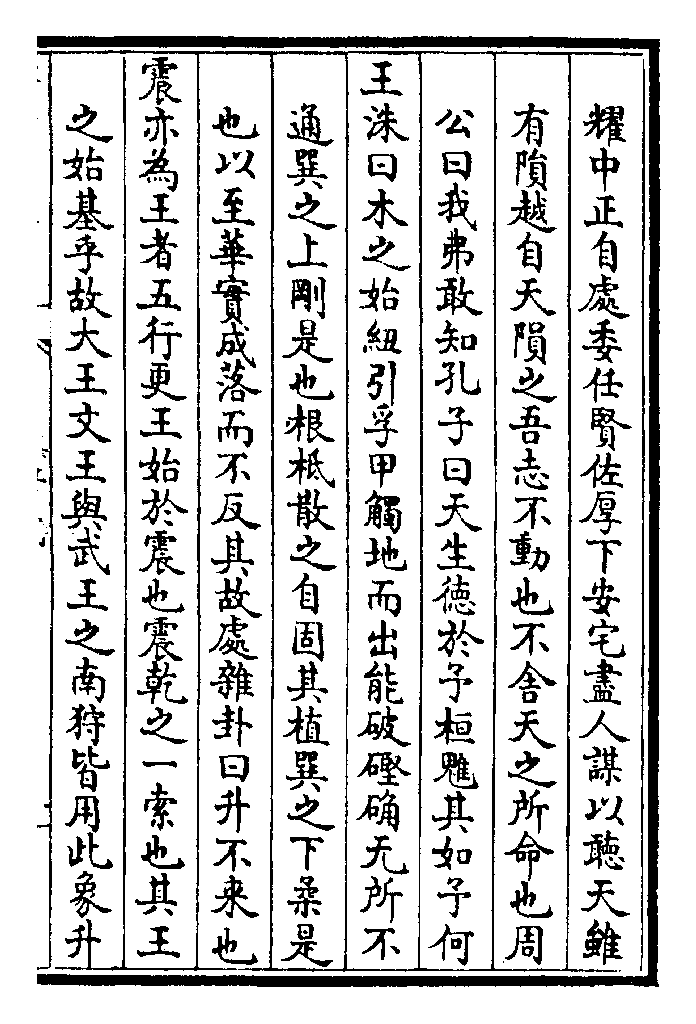 耀中正自處委任賢佐厚下安宅盡人謀以聽天雖
有隕越自天隕之吾志不動也不舍天之所命也周
公曰我弗敢知孔子曰天生德於予桓魋其如予何
王洙曰木之始紐引孚甲觸地而出能破硜确无所不
通巽之上剛是也根柢散之自固其植巽之下桑是
也以至華實成落而不反其故處雜卦曰升不来也
震亦為王者五行更王始於震也震乾之一索也其王
之始基乎故大王文王與武王之南狩皆用此象升